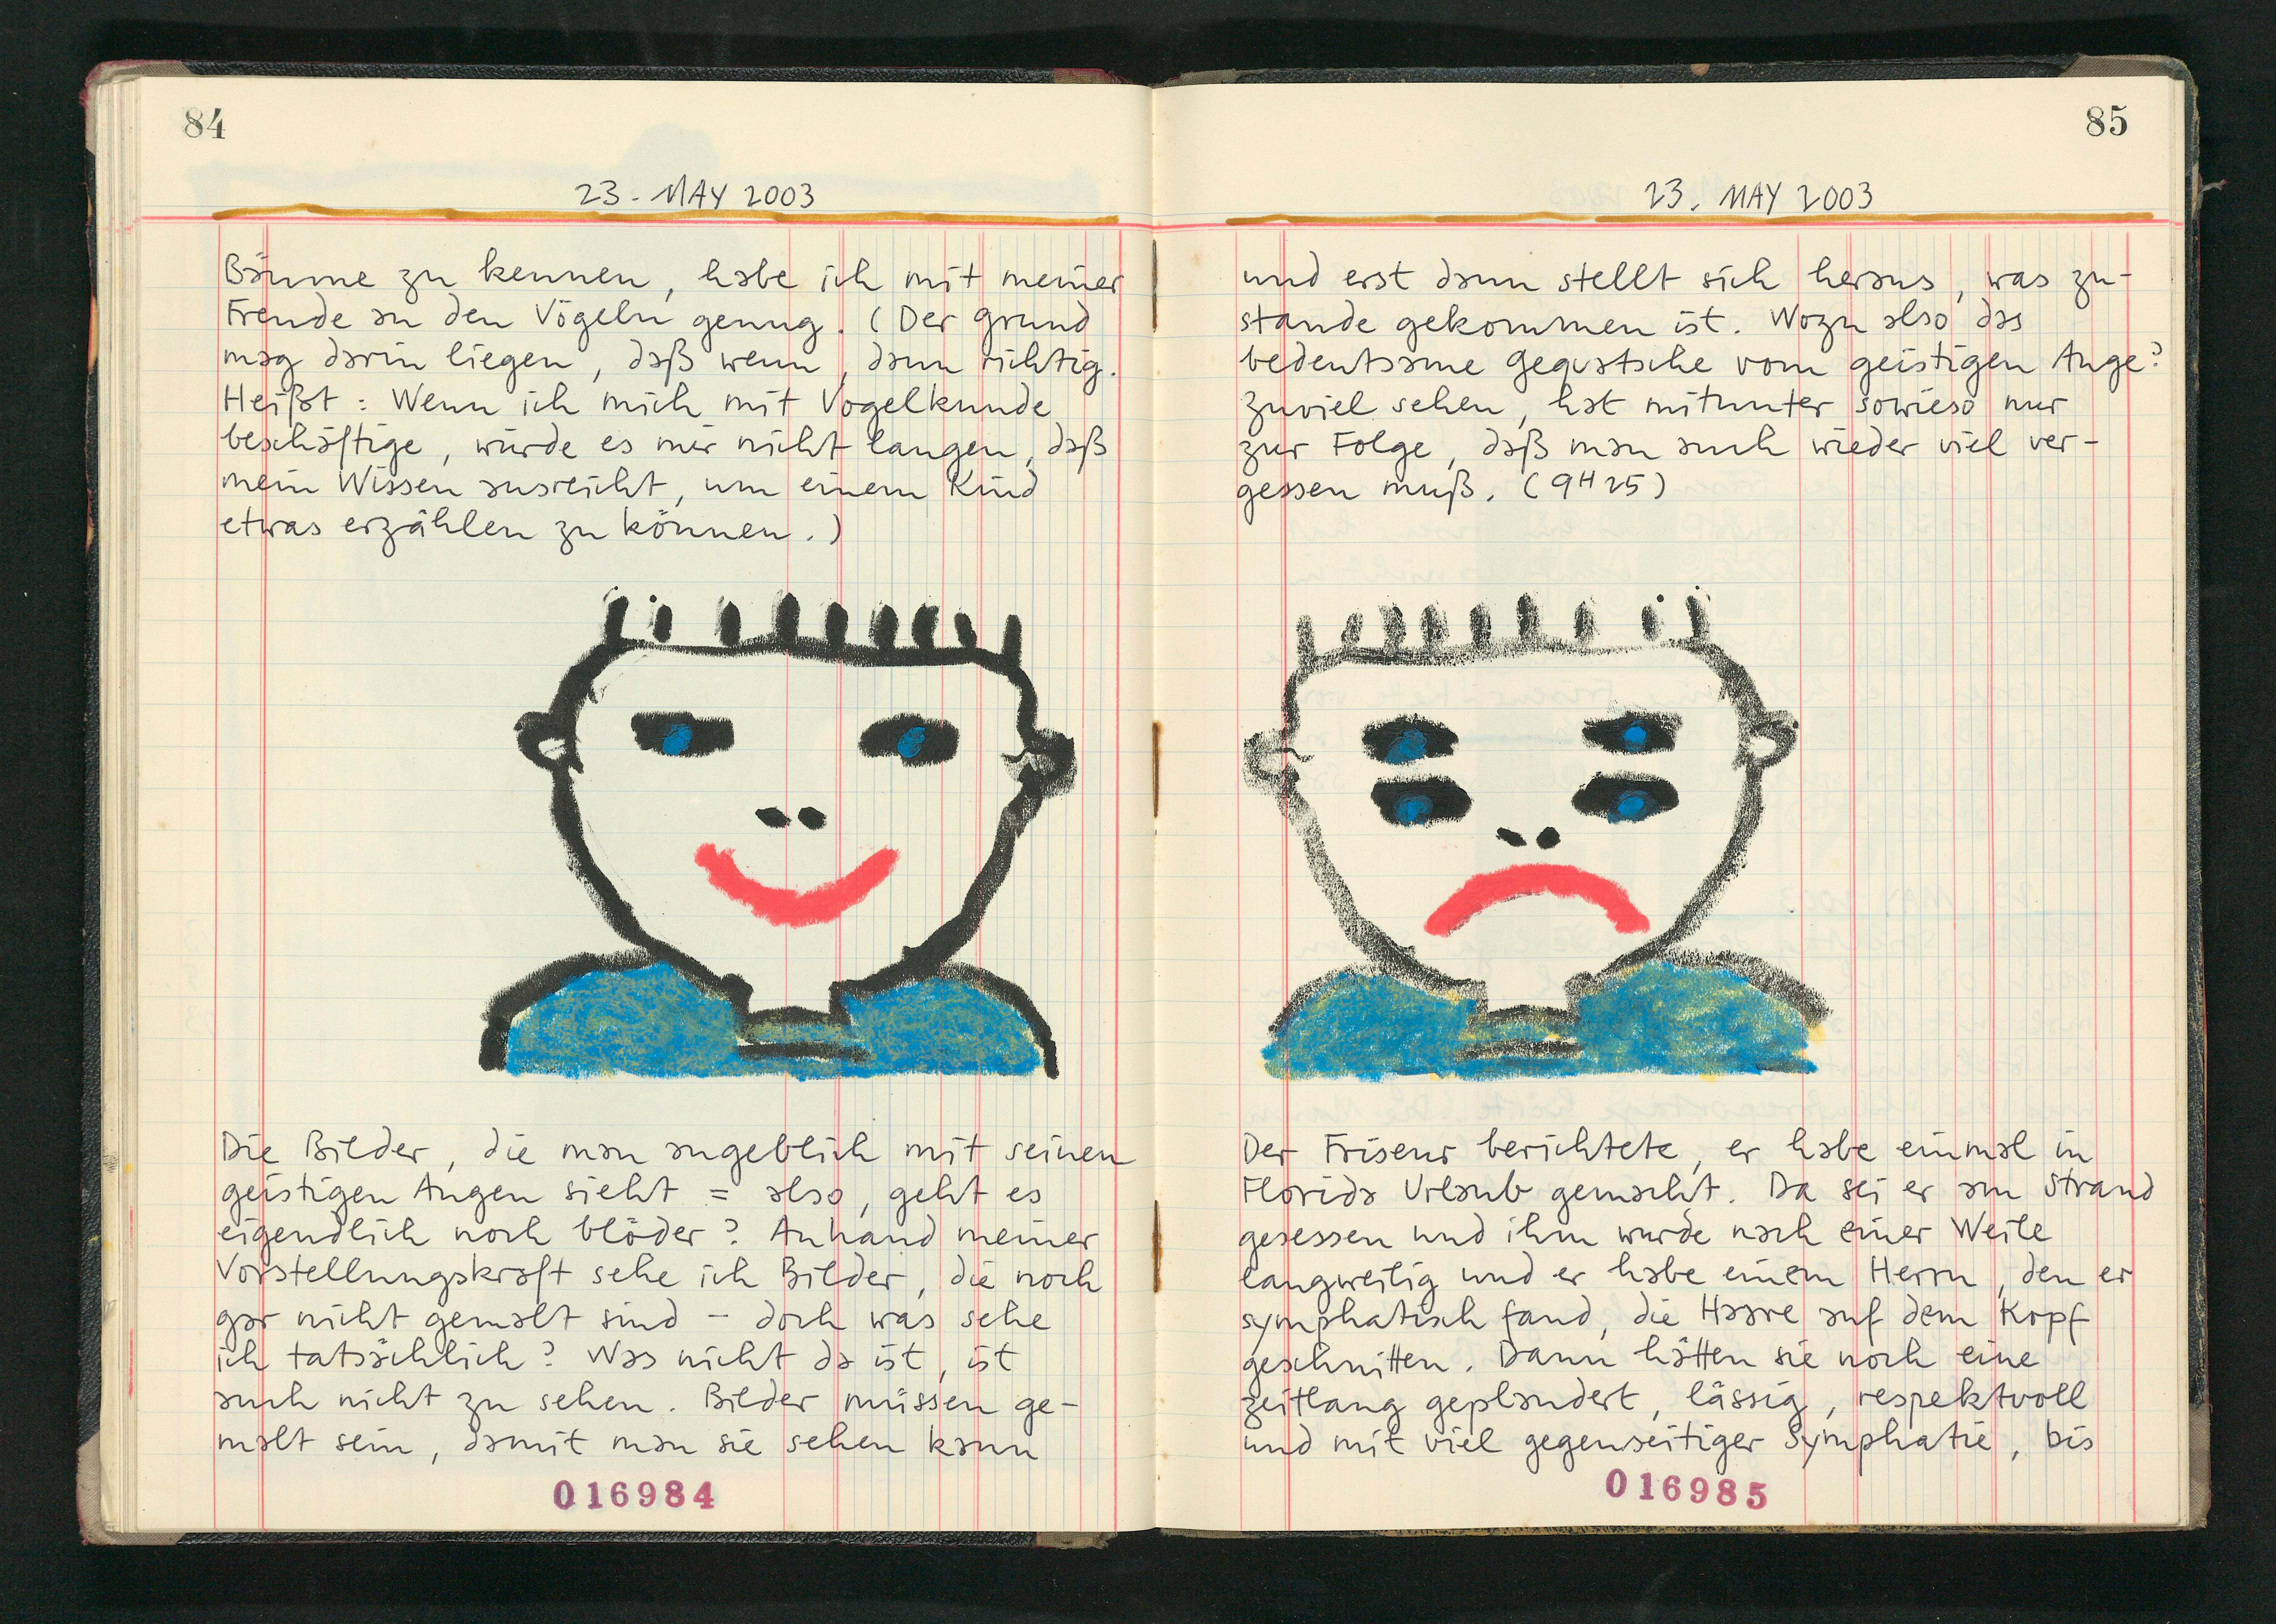 84
23. MAY 2003
Bäume zu kennen, habe ich mit meiner
Freude an den Vögeln genug. (Der Grund
mag darin liegen, daß wenn, dann richtig.
Heißt: Wenn ich mich mit Vogelkunde
beschäftige, würde es mir nicht langen, daß
mein Wissen ausreicht, um einem Kind
etwas erzählen zu können.)
Die Bilder, die man angeblich mit seinen
geistigen Augen sieht = also, geht es
eigendlich noch blöder? Anhand meiner
Vorstellungskraft sehe ich Bilder, die noch
gar nicht gemalt sind – doch was sehe
ich tatsächlich? Was nicht da ist, ist
auch nicht zu sehen. Bilder müssen ge-
malt sein, damit man sie sehen kann
016984
85
23. MAY 2003
und erst dann stellt sich heraus, was zu-
stande gekommen ist. Wozu also das
bedeutsame Gequatsche vom geistigen Auge?
Zuviel sehen, hat mitunter sowieso nur
zur Folge, daß man auch wieder viel ver-
gessen muß. (9H25)
Der Friseur berichtete, er habe einmal in
Florida Urlaub gemacht. Da sei er am Strand
gesessen und ihm wurde nach einer Weile
langweilig und er habe einem Herrn, den er
symphatisch fand, die Haare auf dem Kopf
geschnitten. Dann hätten sie noch eine
zeitlang geplaudert, lässig, respektvoll
und mit viel gegenseitiger Symphatie, bis
016985